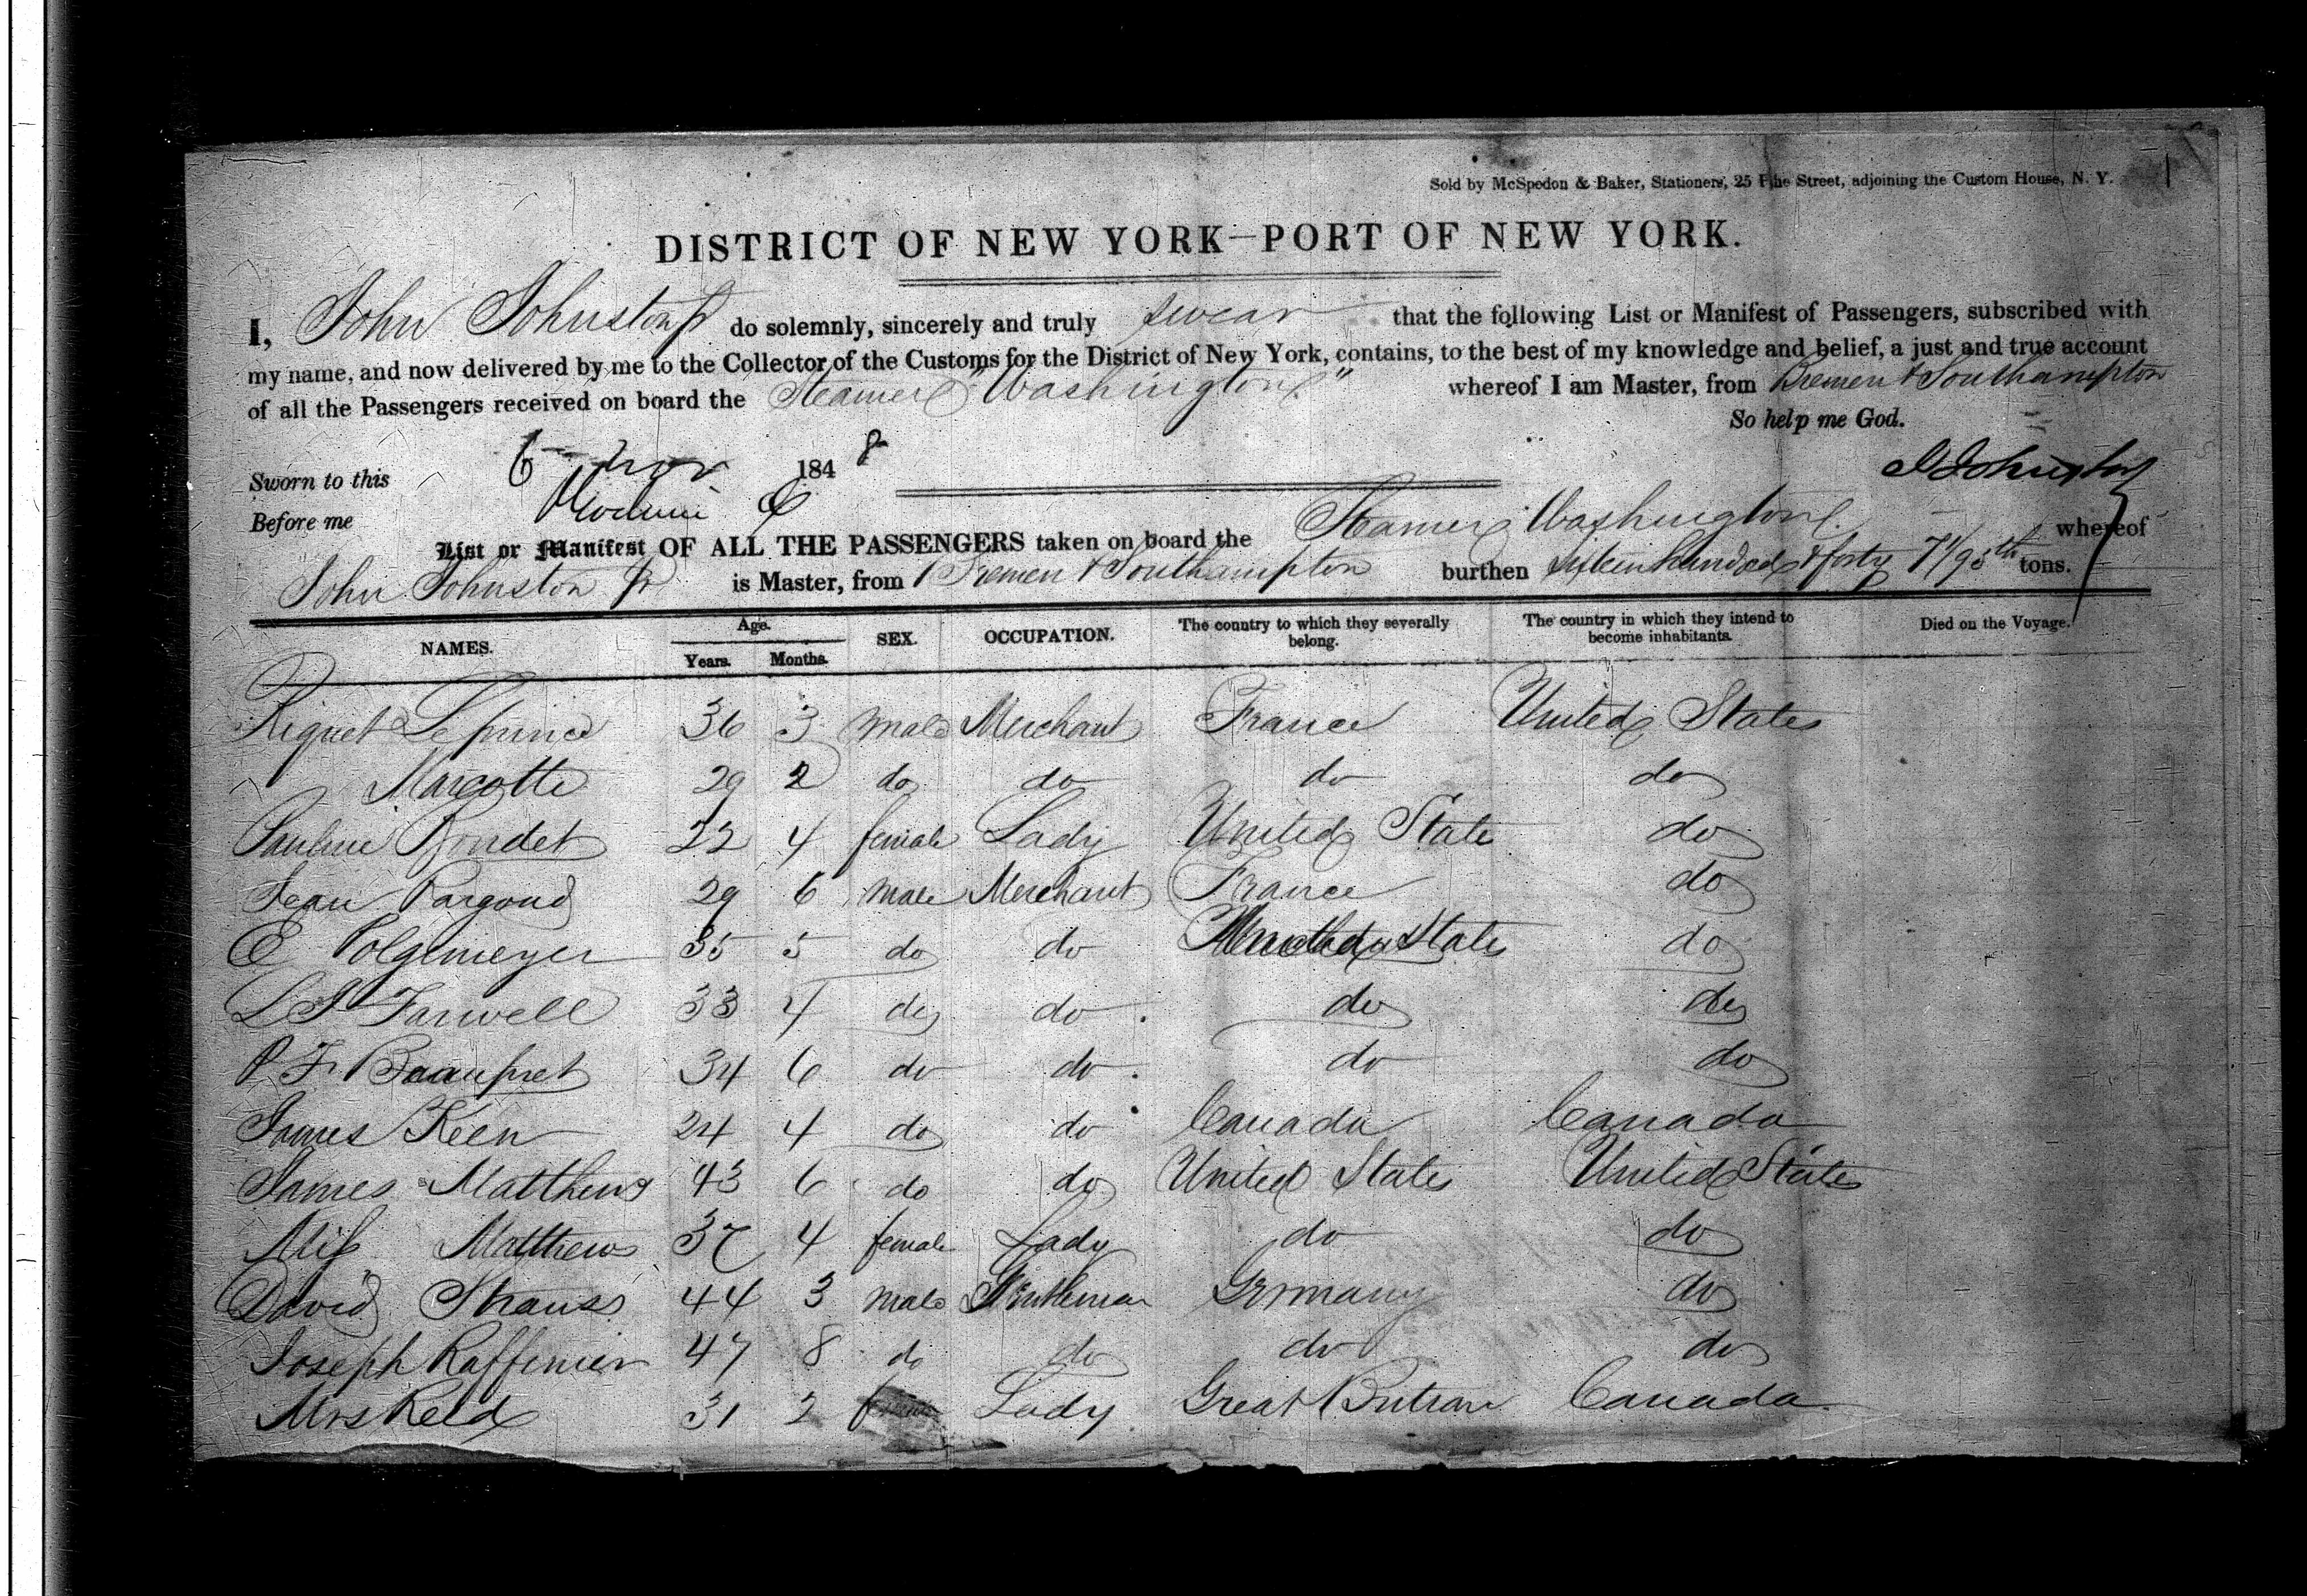 Sold by McSpedon & Baker, Stationers, 25 Pine Street, adjoining the Custom House, N. Y.
DISTRICT OF NEW YORK—PORT OF NEW YORK.
I, John Johnston Jr do solemnly, sincerely and truly swear that the following List or Manifest of Passengers, subscribed with
my name, and now delivered by me to the Collector of the Customs for the District of New York, contains, to the best of my knowledge and belief, a just and true account
of all the Passengers received on board the Steamer "Washington" whereof I am Master, from Bremen & Southampton
So help me God.
Sworn to this 6 Nov 1848 J Johnston
Before me
List or Manifest OF ALL THE PASSENGERS taken on board the Steamer Washington whereof
John Johnston Jr is Master, from Bremen & Southampton burthen sixteen hundred & forty 71/95th tons.
NAMES. Age. Years. Months. SEX. OCCUPATION. The country to which they severally belong. The country in which they intend to become inhabitants. Died on the Voyage.
Riquet Leprince 36 3 male Merchant France United States
Marcotte 29 2 do do do do
Pauline Rondet 22 4 female Lady United State do
Jean Pargoud 29 6 male Merchant France do
E Polgemeyer 35 5 do do United States do
L J Farwell 33 4 do do do do
P F Beaupret 34 6 do do do do
James Keen 24 4 do do Canada Canada
James Matthews 43 6 do do United States United States
Miss Matthews 37 4 female Lady do do
David Strauss 44 3 male Gentleman Germany do
Joseph Raffenier 47 8 do do do do
Mrs Reid 31 2 Lady Great Britain Canada